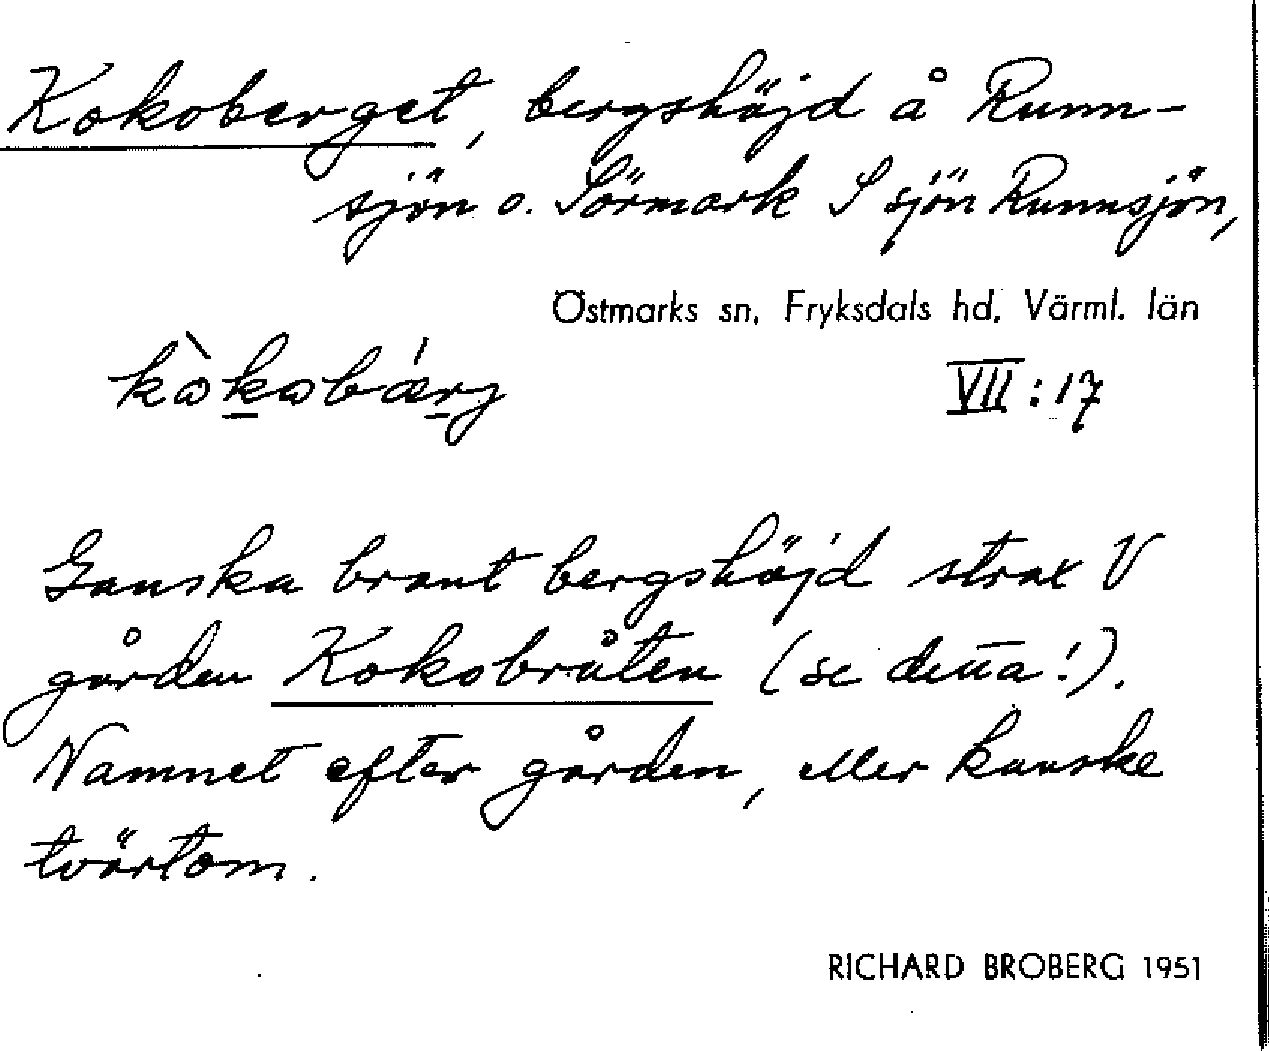 Kokoberget, bergshöjd å Runn-
sjön o. Sörmark S sjön Runnsjön,
Östmarks sn, Fryksdals hd, Värml. län
kòkobǽrj
VII:17
Ganska brant bergshöjd strax V
gården Kokobråten (se detta!).
Namnet efter gården, eller kanske
tvärtom.
RICHARD BROBERG 1951